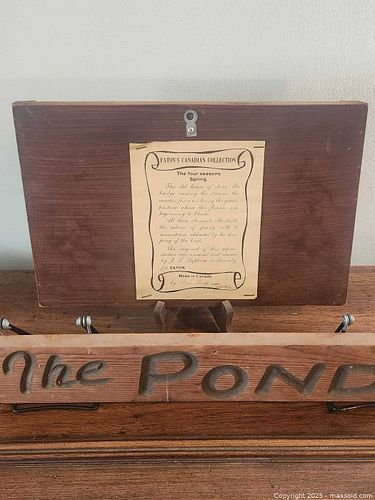 EATON'S CANADIAN COLLECTION
The four seasons
Spring
The old house of stone, the
bridge crossing the stream, the
garden
pasture where the flowers are
beginning to bloom.
All these elements illustrate
the return of spring with its
by the
of the birds.
The original of this repro-
duction was conceived and carved
by J. P. exclusively
for EATON
Made in Canada
by
The POND
Copyright 2025 - maxsold.com